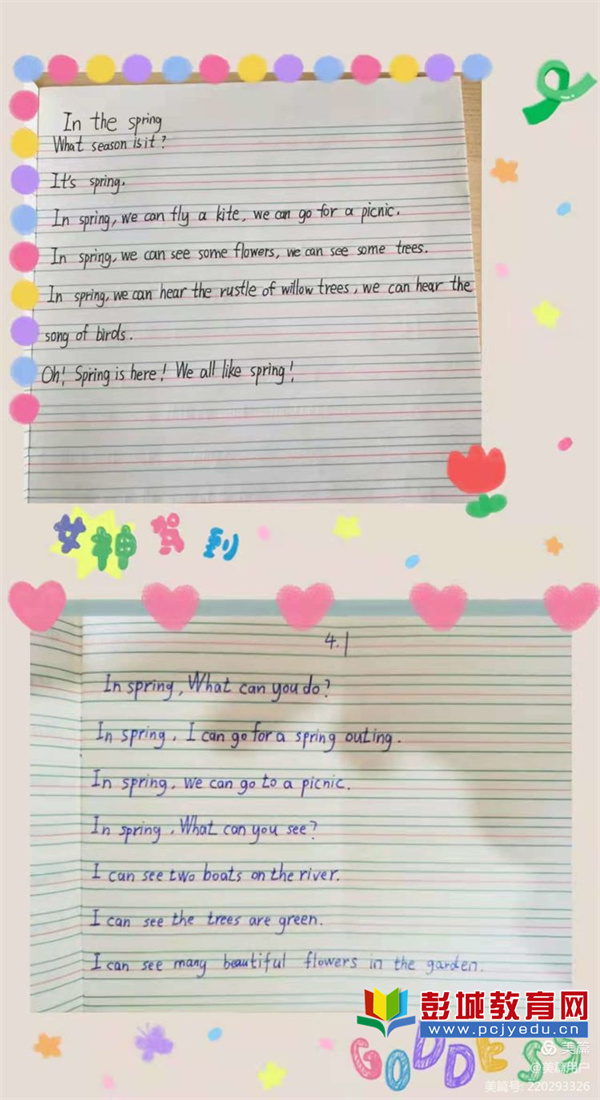 In the spring
What season is it?
It's spring.
In spring, we can fly a kite, we can go for a picnic.
In spring, we can see some flowers, we can see some trees.
In spring, we can hear the rustle of willow trees, we can hear the
song of birds.
Oh! Spring is here! We all like spring!
女神驾到
4.1
In spring, What can you do?
In spring, I can go for a spring outing.
In spring, we can go to a picnic.
In spring, What can you see?
I can see two boats on the river.
I can see the trees are green.
I can see many beautiful flowers in the garden.
彭城教育网
www.pcjyedu.cn
GODDESS
美篇
@美篇用户
美篇号: 220293326